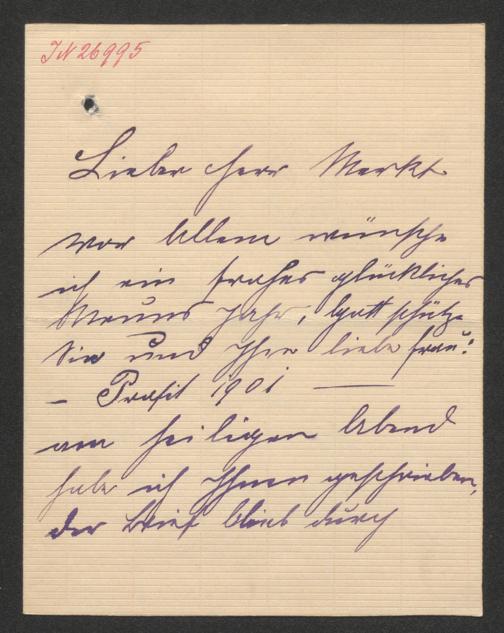 IN 26995
Lieber Herr Merkt
vor Allem wünsche
ich ein frohes glückliches
Neues Jahr, Gott schütze
Sie und Ihre liebe Frau!
– Prosit 1901 —
am heiligen Abend
habe ich Ihnen geschrieben,
der Brief blieb durch